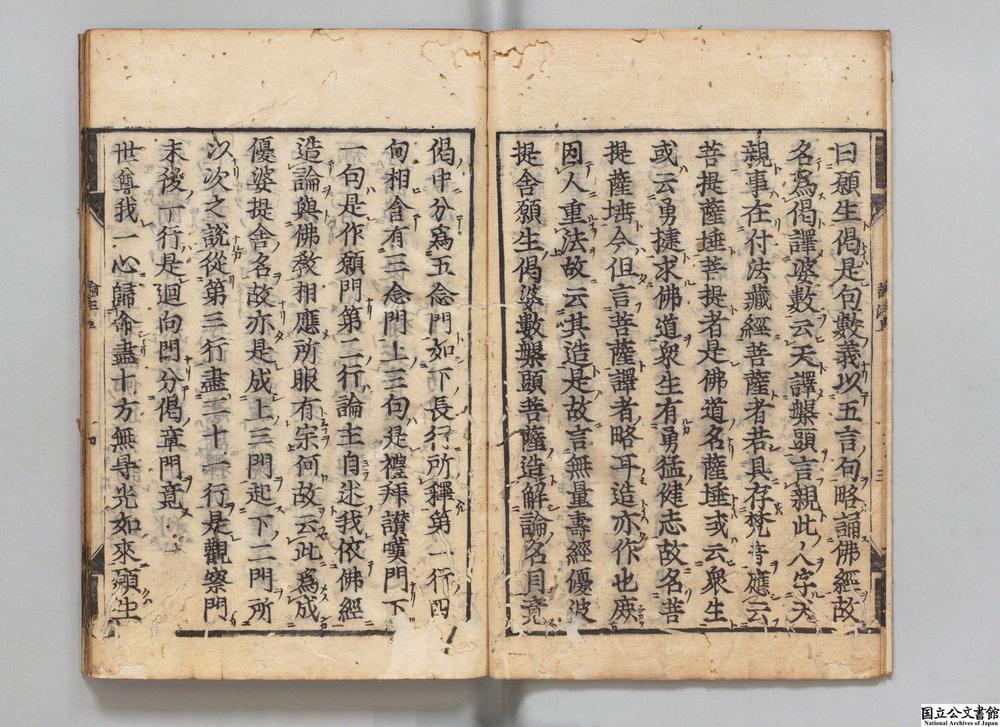 曰願生偈是句數義以五言句略誦佛經故
名為偈譯婆數云天譯槃頭言親此人字天
親事在付法藏經菩薩者若具存梵音應云
菩提薩埵菩提者是佛道名薩埵或云衆生
或云勇揵求佛道衆生有勇猛健志故名菩
提薩埵今但言菩薩譯者略耳造亦作也庶
因人重法故云某造是故言無量壽經優波
提舍願生偈婆數槃頭菩薩造解論名目竟
偈中分爲五念門如下長行所釋第一行四
句相含有三念門上三句是禮拜讃嘆門下
一句是作願門第二行論主自述我依佛經
造論與佛教相應所服有宗何故云此爲成
優婆提舍名故亦是成上三門起下二門所
以次之説從第三行盡二十一行是觀察門
末後一行是迴向門分偈章門竟
世尊我一心歸命盡十方無㝵光如來願生
国立公文書館
National Archives of Japan